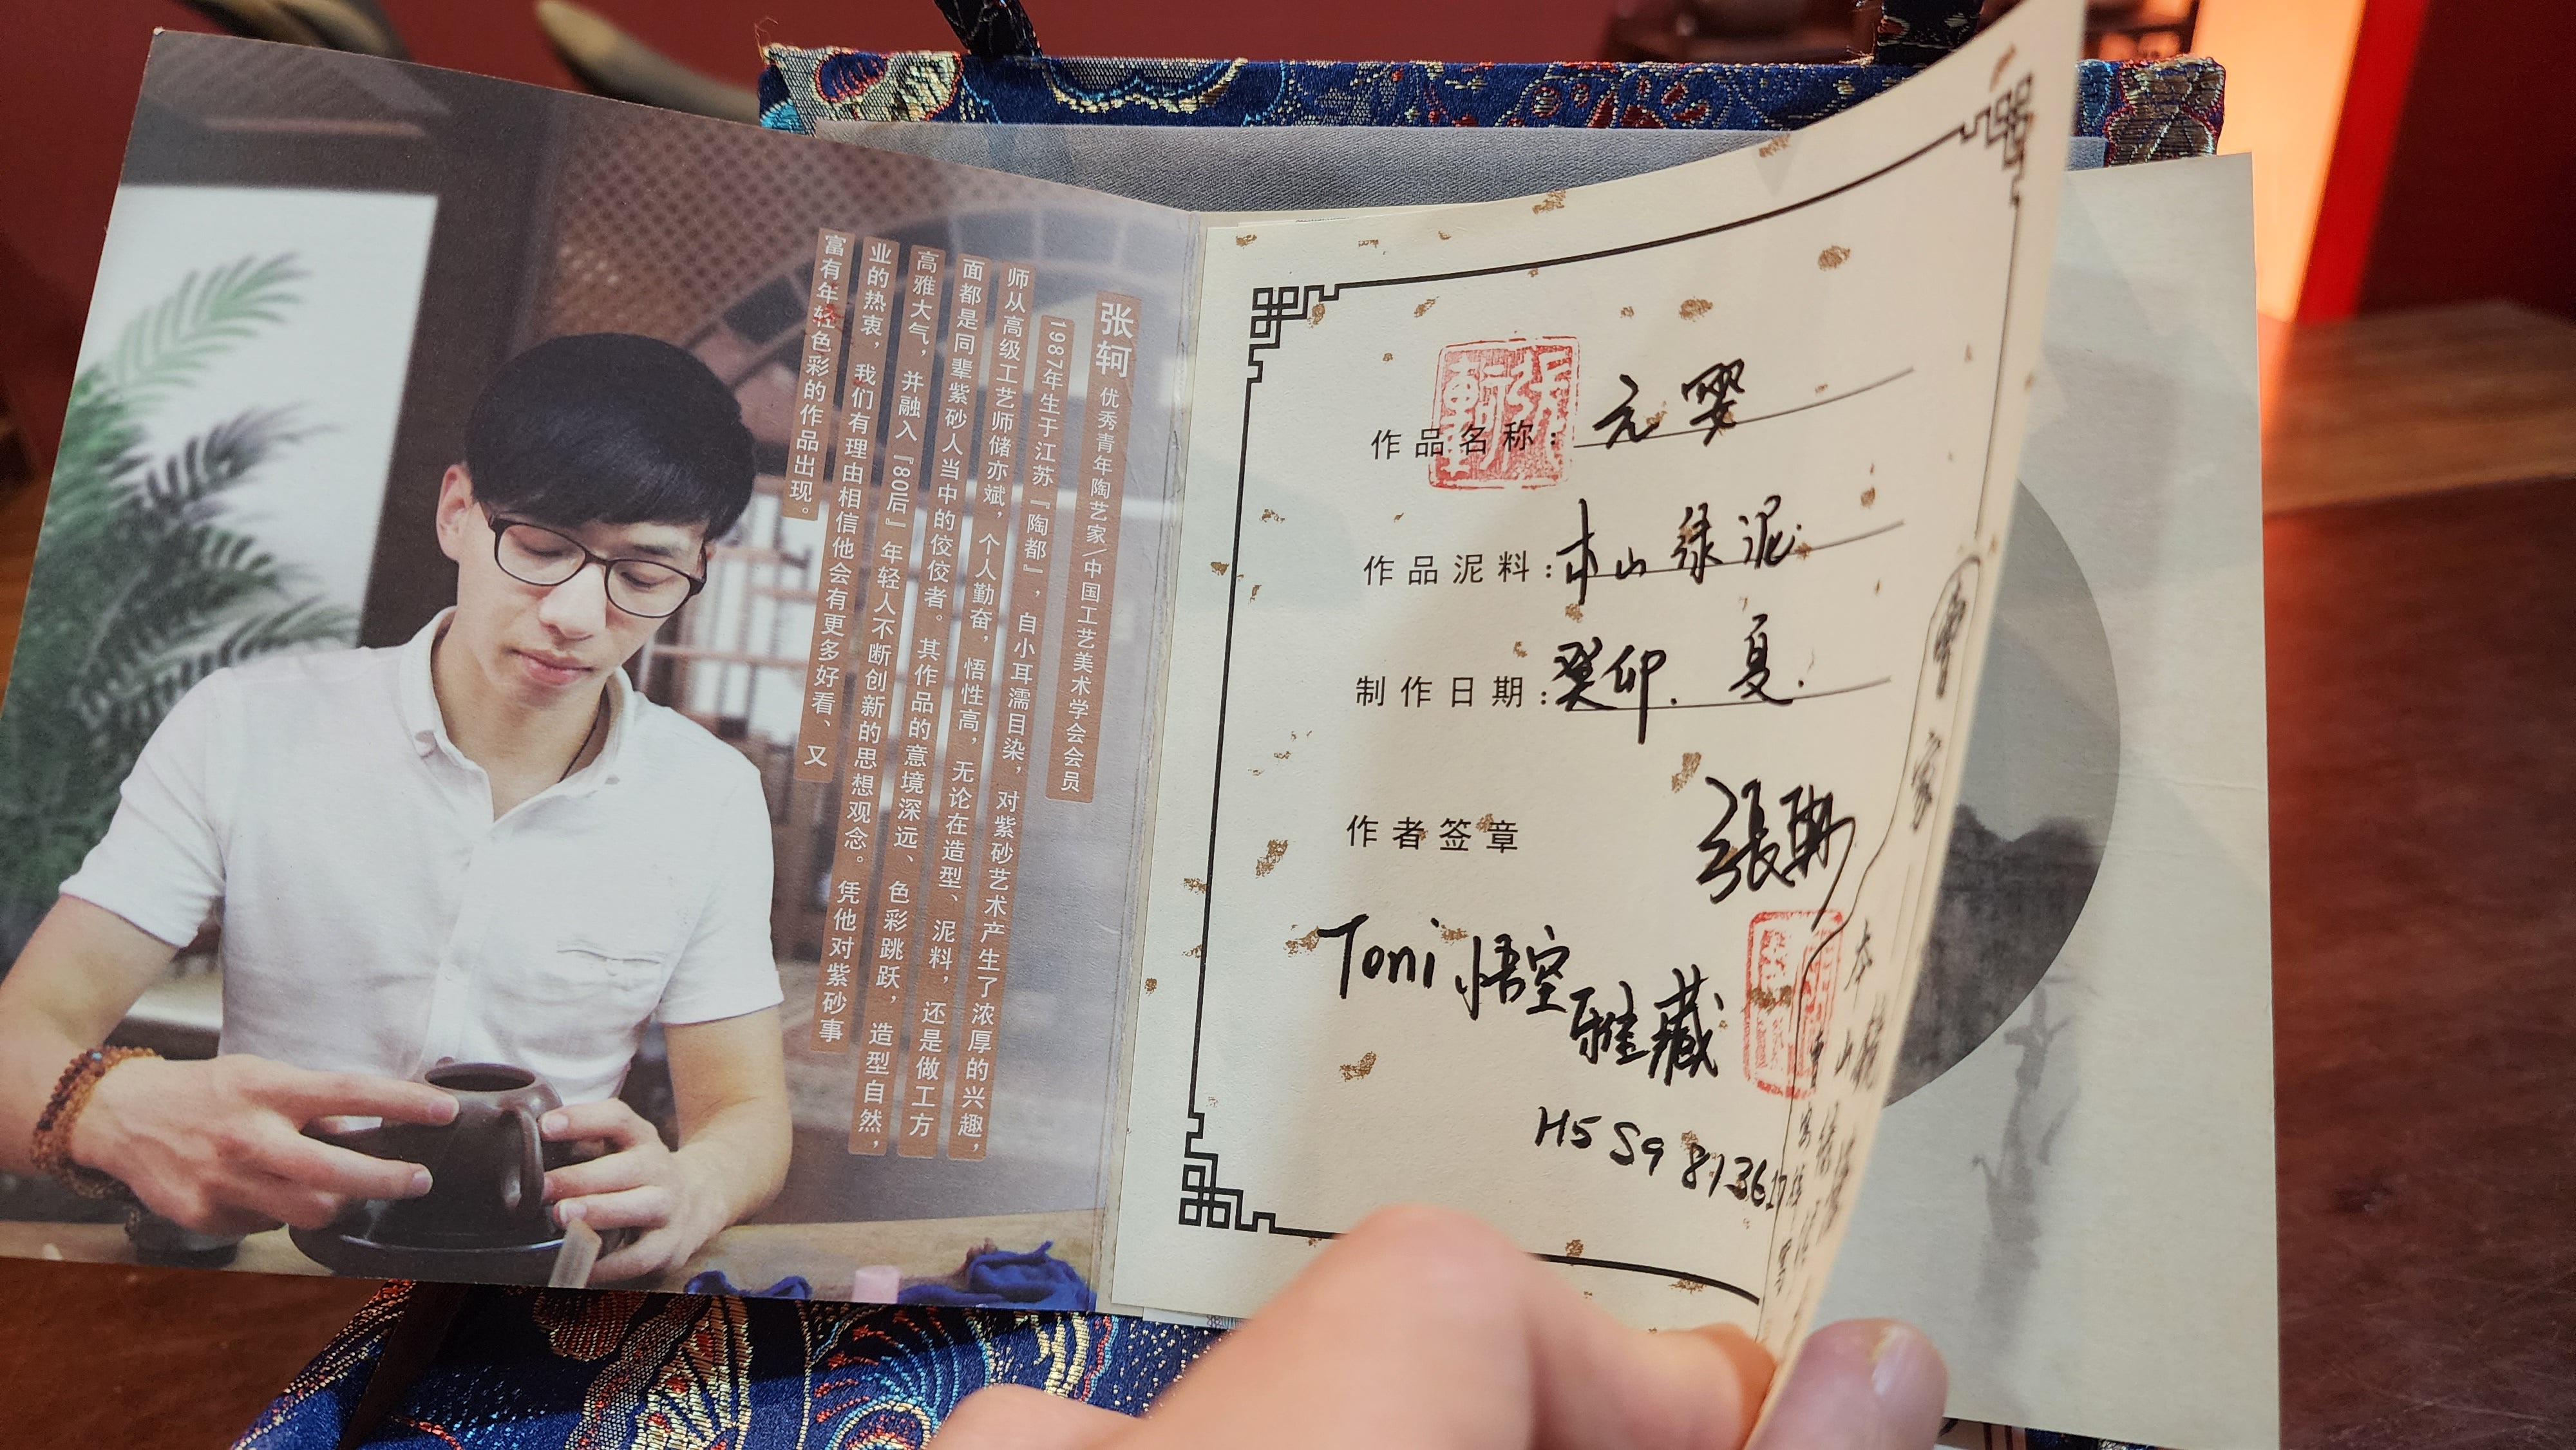 张轲 优秀青年陶艺家/中国工艺美术学会会员
1987年生于江苏『陶都』，自小耳濡目染，对紫砂艺术产生了浓厚的兴趣，
师从高级工艺师储亦斌，个人勤奋，悟性高，无论在造型、泥料，还是做工方
面都是同辈紫砂人当中的佼佼者。其作品的意境深远、色彩跳跃，造型自然，
高雅大气，并融入『80后』年轻人不断创新的思想观念。凭他对紫砂事
业的热衷，我们有理由相信他会有更多好看、又
富有年轻色彩的作品出现。
作品名称：元婴
作品泥料：本山绿泥
制作日期：癸卯.夏.
作者签章
張軻
Toni 悟空
雅藏
H5 S9 813617